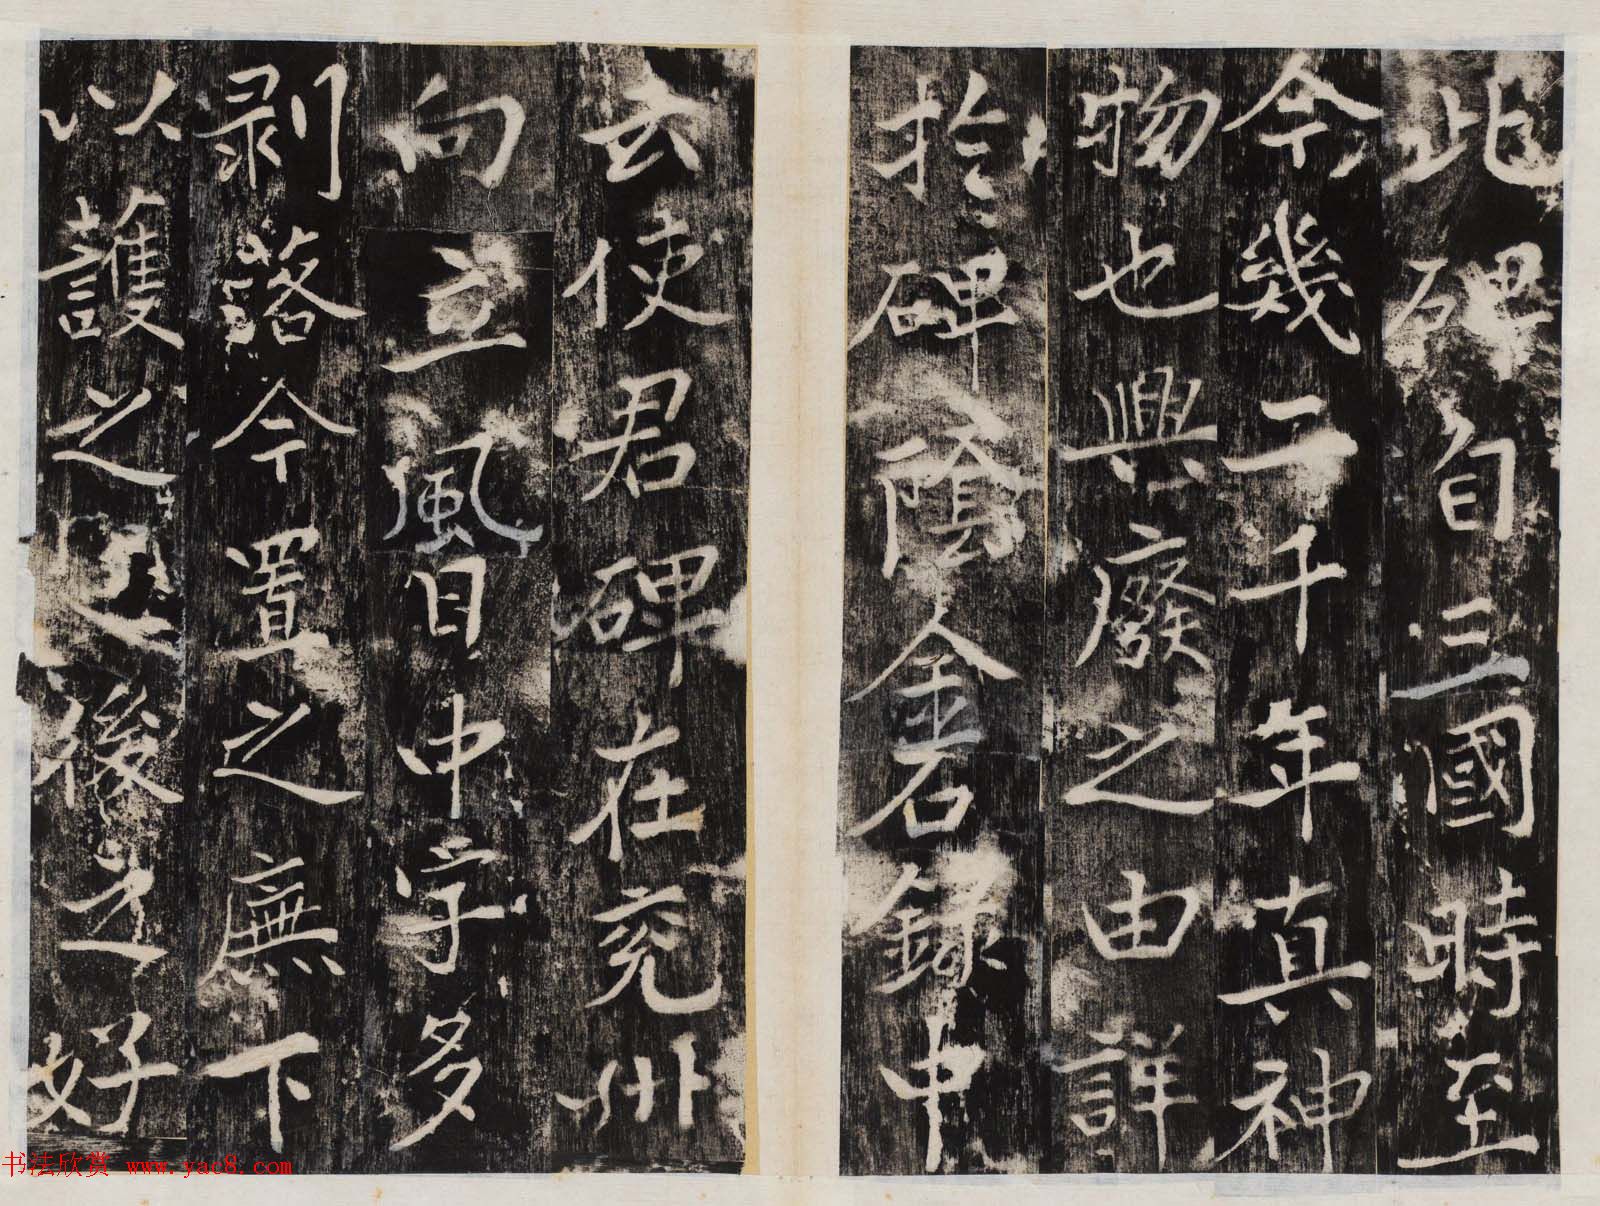 此碑自三國時至
今幾二千年真神
物也興廢之由詳
於碑陰金石錄中
云使君碑在兖州
向立風日中字多
剥落今置之廡下
以護之後之好
书法欣赏 www.yac8.com